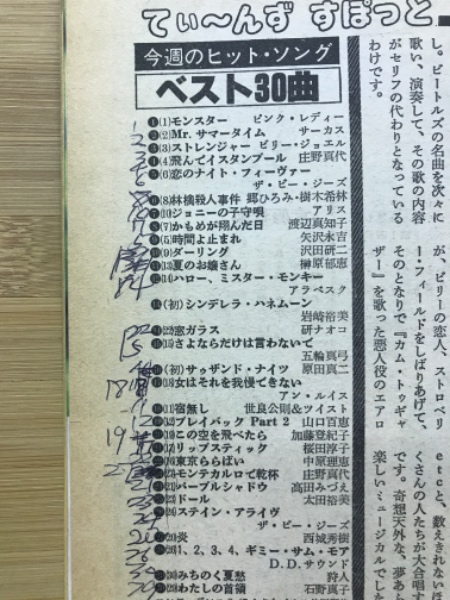 てぃ〜んず すぽっと
今週のヒット・ソング
ベスト30曲
❶(1)モンスター ピンク・レディー
❷(2)Mr. サマータイム サーカス
❸(3)ストレンジャー ビリー・ジョエル
❹(4)飛んでイスタンブール 庄野真代
❺(6)恋のナイト・フィーヴァー
ザ・ビー・ジーズ
❻(8)林檎殺人事件 郷ひろみ・樹木希林
❼(10)ジョニーの子守唄 アリス
❽(7)かもめが翔んだ日 渡辺真知子
❾(5)時間よ止まれ 矢沢永吉
❿(9)ダーリング 沢田研二
⓫(13)夏のお嬢さん 榊原郁恵
⓬(14)ハロー、ミスター・モンキー
アラベスク
(初)シンデレラ・ハネムーン
岩崎宏美
(22)窓ガラス 研ナオコ
(15)さよならだけは言わないで
五輪真弓
(初)サウザンド・ナイツ 原田真二
(18)女はそれを我慢できない
アン・ルイス
(11)宿無し 世良公則&ツイスト
(12)プレイバック Part 2 山口百恵
この空を飛べたら 加藤登紀子
(17)リップスティック 桜田淳子
東京ららばい 中原理恵
モンテカルロで乾杯 庄野真代
パープルシャドウ 高田みづえ
ドール 太田裕美
ステイン・アライヴ
ザ・ビー・ジーズ
炎 西城秀樹
1、2、3、4、ギミー・サム・モア
D.D.サウンド
みちのく夏愁 狩人
わたしの首領 石野真子
し。ビートルズの名曲を次々に
歌い、演奏して、その歌の内容
がセリフの代わりとなっている
わけです。
が、ビリーの恋人、ストロベリ
ーフィールドをしばりあげて、
そのとなりで『カム・トゥギャ
ザー』を歌った悪人役のエアロ
etcと、数えきれないほ
くさんの人たちが大合唱す
です。奇想天外な、夢あふ
楽しいミュージカルでした